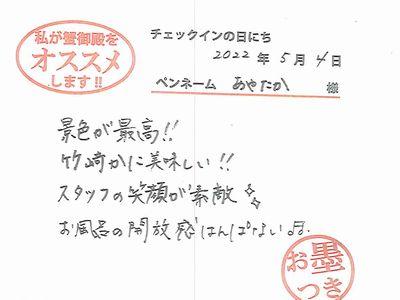 私が蟹御殿を
オススメ
します!!
チェックインの日にち
2022年5月4日
ペンネーム あやたか 様
景色が最高!!
竹崎かに美味しい!!
スタッフの笑顔が素敵✨
お風呂の開放感はんぱない♬.
お墨
つき